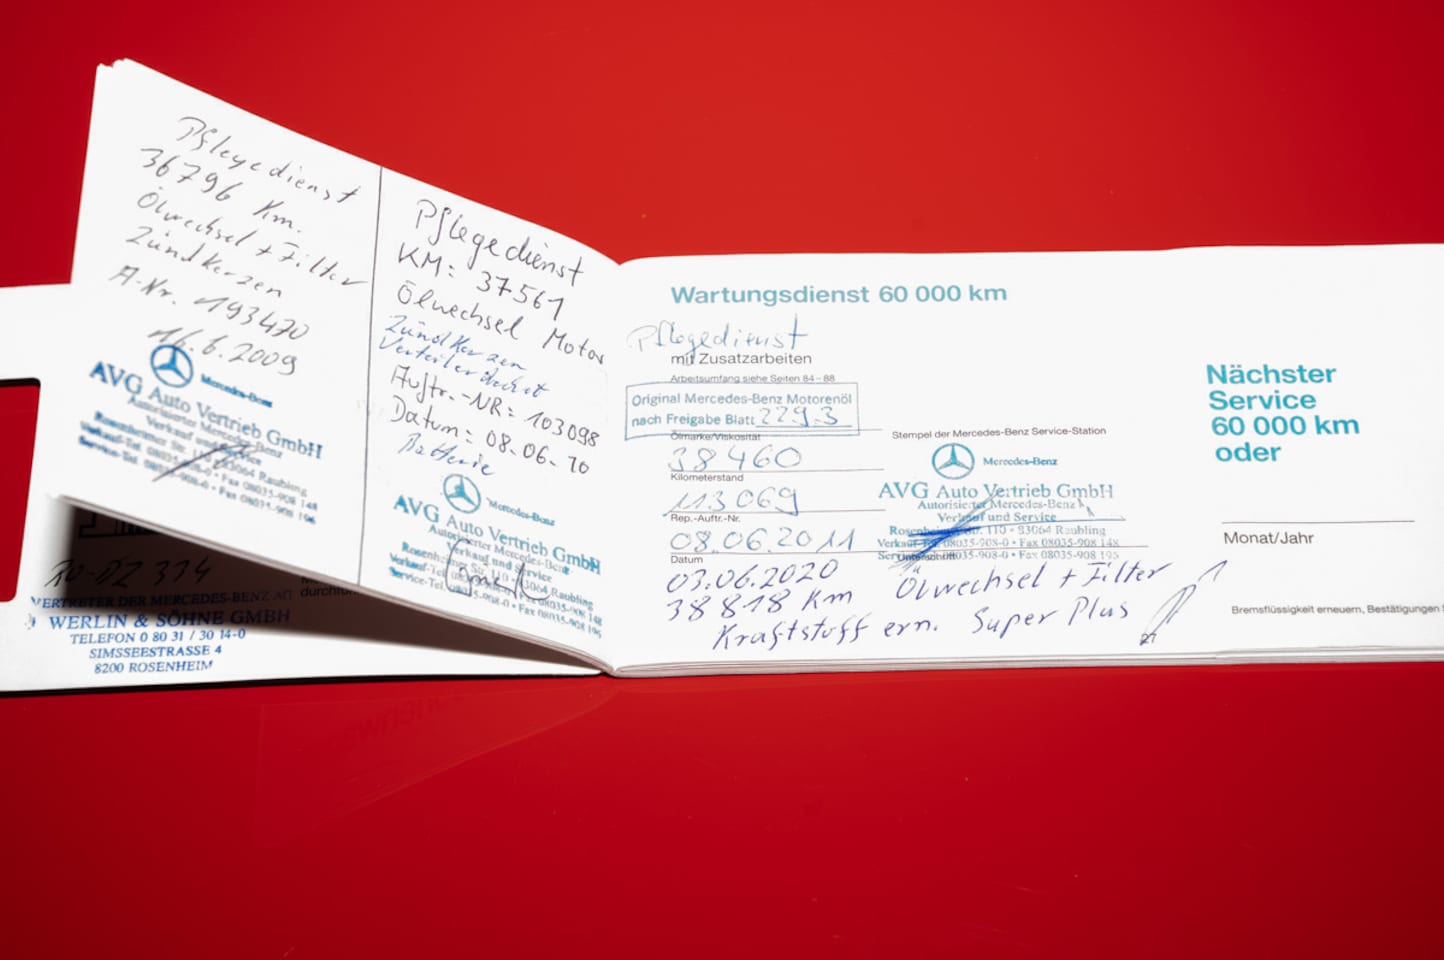 Pflegedienst
36796 Km.
Ölwechsel + Filter
Zündkerzen
A-Nr. 193470
16.6.2009
Mercedes-Benz
AVG Auto Vertrieb GmbH
Autorisierter Mercedes-Benz
Verkauf und Service
Rosenheimer Str. 110 · 83064 Raubling
Verkauf-Tel. 08035-908-0 · Fax 08035-908 148
Service-Tel. 08035-908-0 · Fax 08035-908 196
Pflegedienst
KM: 37561
Ölwechsel Motor
Zündkerzen
Auftr.-NR: 103098
Datum: 08.06.10
Batterie
Mercedes-Benz
AVG Auto Vertrieb GmbH
Autorisierter Mercedes-Benz
Verkauf und Service
Rosenheimer Str. 110 · 83064 Raubling
Verkauf-Tel. 08035-908-0 · Fax 08035-908 148
Service-Tel. 08035-908-0 · Fax 08035-908 196
RO-DZ 334
VERTRETER DER MERCEDES-BENZ AG
WERLIN & SÖHNE GMBH
TELEFON 0 80 31 / 30 14-0
SIMSSEESTRASSE 4
8200 ROSENHEIM
Wartungsdienst 60 000 km
Pflegedienst
mit Zusatzarbeiten
Arbeitsumfang siehe Seiten 84 – 88
Original Mercedes-Benz Motorenöl
nach Freigabe Blatt 229.3
Ölmarke/Viskosität
38460
Kilometerstand
113069
Rep.-Auftr.-Nr.
08.06.2011
Datum
Stempel der Mercedes-Benz Service-Station
Mercedes-Benz
AVG Auto Vertrieb GmbH
Autorisierter Mercedes-Benz
Verkauf und Service
Rosenheimer Str. 110 · 83064 Raubling
Verkauf-Tel. 08035-908-0 · Fax 08035-908 148
Service-Tel. 08035-908-0 · Fax 08035-908 195
Unterschrift
03.06.2020 Ölwechsel + Filter
38818 Km
Kraftstoff ern. Super Plus
Nächster
Service
60 000 km
oder
Monat/Jahr
Bremsflüssigkeit erneuern, Bestätigungen